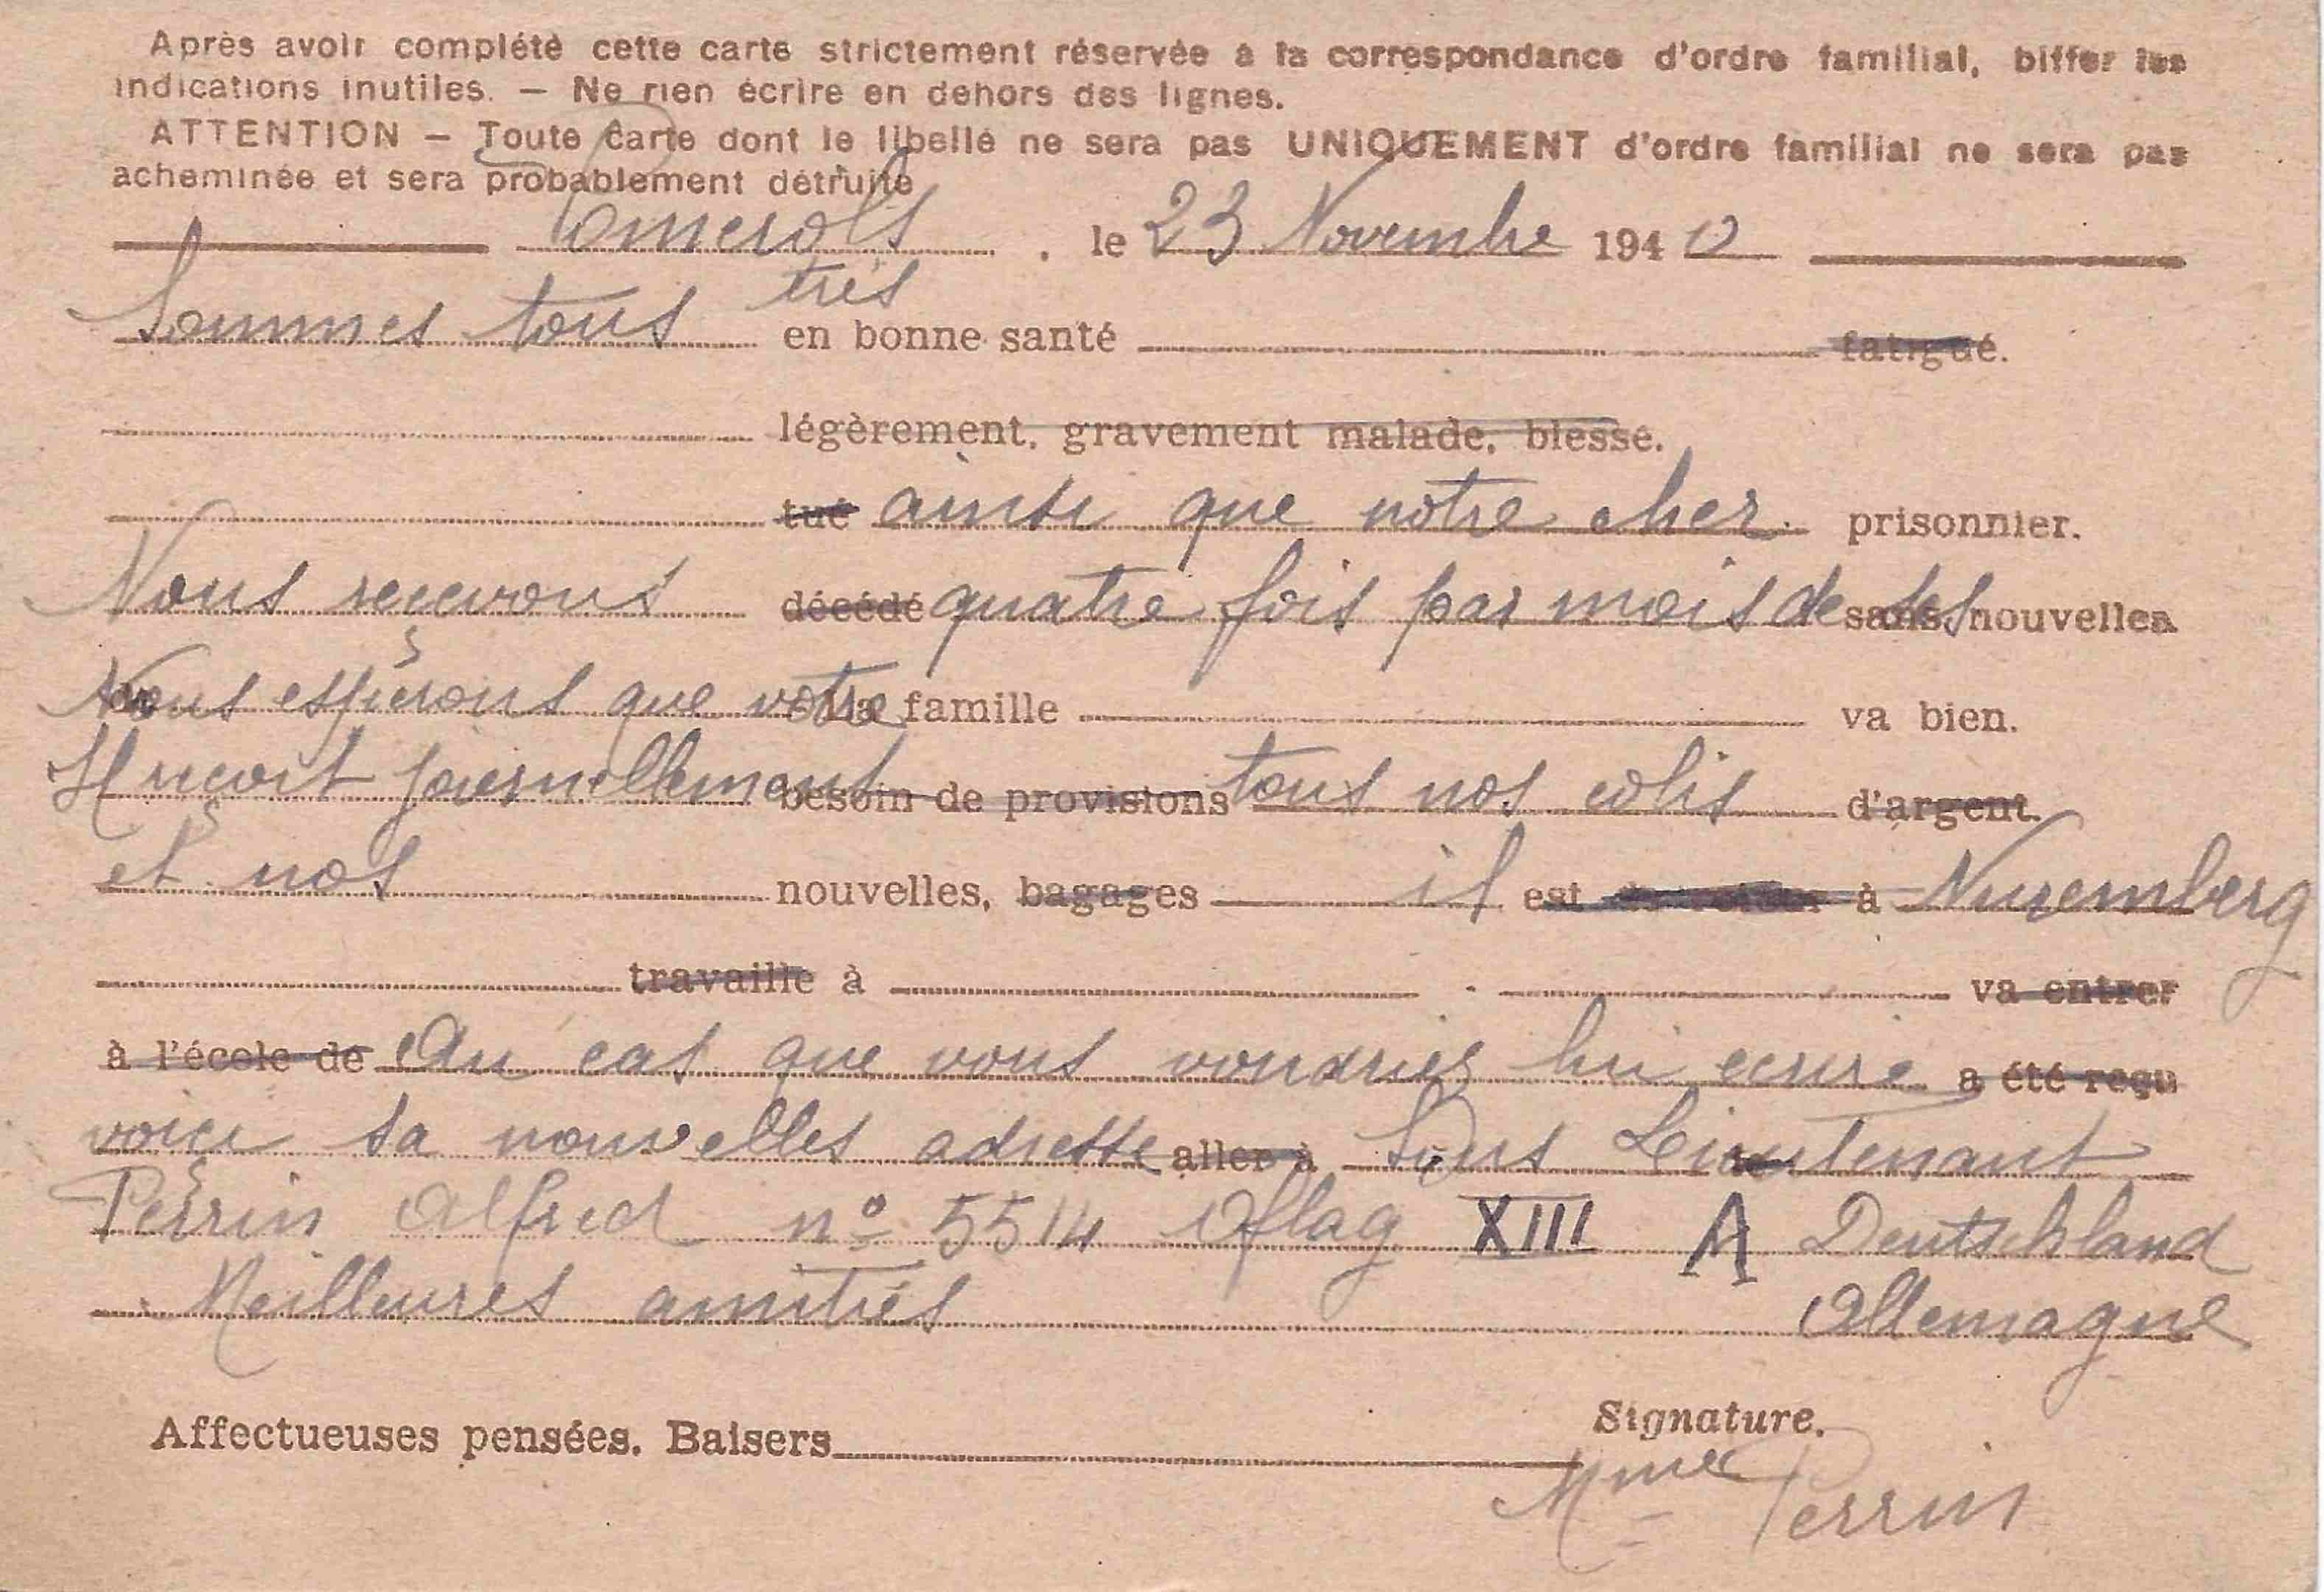 Après avoir complété cette carte strictement réservée à la correspondance d'ordre familial, biffer les
indications inutiles. — Ne rien écrire en dehors des lignes.
ATTENTION — Toute carte dont le libellé ne sera pas UNIQUEMENT d'ordre familial ne sera pas
acheminée et sera probablement détruite
Pomerols . le 23 Novembre 1940
très
Sommes tous en bonne santé fatigué.
légèrement, gravement malade, blessé.
tué ainsi que notre cher prisonnier.
Nous recevons décédé quatre fois par mois de ses sans nouvelles
Nous espérons que votre La famille va bien.
Il reçoit journellement besoin de provisions tous nos colis d'argent.
et nos nouvelles, bagages il est à Nuremberg
travaille à va entrer
à l'école de Au cas que vous voudriez lui ecrire a été reçu
voici sa nouvelles adresse aller à Sous Lieutenant
Perrin Alfred n° 5514 Oflag XIII A Deutschland
Meilleures amitiés Allemagne
Affectueuses pensées. Baisers
Signature.
Mme Perrin